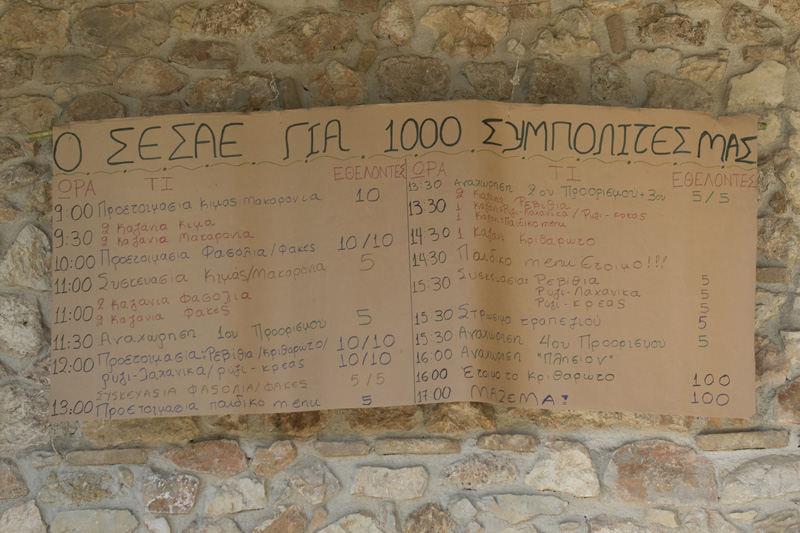 Ο ΣΕΣΑΕ ΓΙΑ 1000 ΣΥΜΠΟΛΙΤΕΣ ΜΑΣ
ΩΡΑ ΤΙ ΕΘΕΛΟΝΤΕΣ
9:00 Προετοιμασία Κιμάς Μακαρόνια 10
9:30 2 Καζάνια Κιμά
2 Καζάνια Μακαρόνια
10:00 Προετοιμασία Φασόλια/Φακές 10/10
11:00 Συσκευασία Κιμάς/Μακαρόνια 5
11:00 2 Καζάνια Φασόλια
2 Καζάνια Φακές
11:30 Αναχώρηση 1ου Προορισμού 5
12:00 Προετοιμασία Ρεβίθια/Κριθαρωτο/ 10/10
ρυζι-λαχανικα/ρυζι-κρεας 10/10
ΣΥΣΚΕΥΑΣΙΑ ΦΑΣΟΛΙΑ/ΦΑΚΕΣ 5/5
13:00 Προετοιμασία παιδικο menu 5
ΩΡΑ ΤΙ ΕΘΕΛΟΝΤΕΣ
13:30 Αναχώρηση 2ου Προορισμού+3ου 5/5
13:30 2 Καζάνια Ρεβίθια
1 Καζάνι Ρυζι-Λαχανικα/Ρυζι-κρεας
1 Καζάνι Παιδικο menu
14:30 1 Καζάνι κριθαρωτο
14:30 Παιδικο menu Ετοιμο!!!
15:30 Συσκευασία Ρεβίθια 5
Ρυζι-Λαχανικα 5
Ρυζι-κρεας 5
15:30 Στρωσιμο τραπεζιου 5
15:30 Αναχωρηση 4ου Προορισμου 5
16:00 Αναχωρηση "Πλησιον"
16:00 Ετοιμο το κριθαρωτο 100
17:00 ΜΑΖΕΜΑ! 100